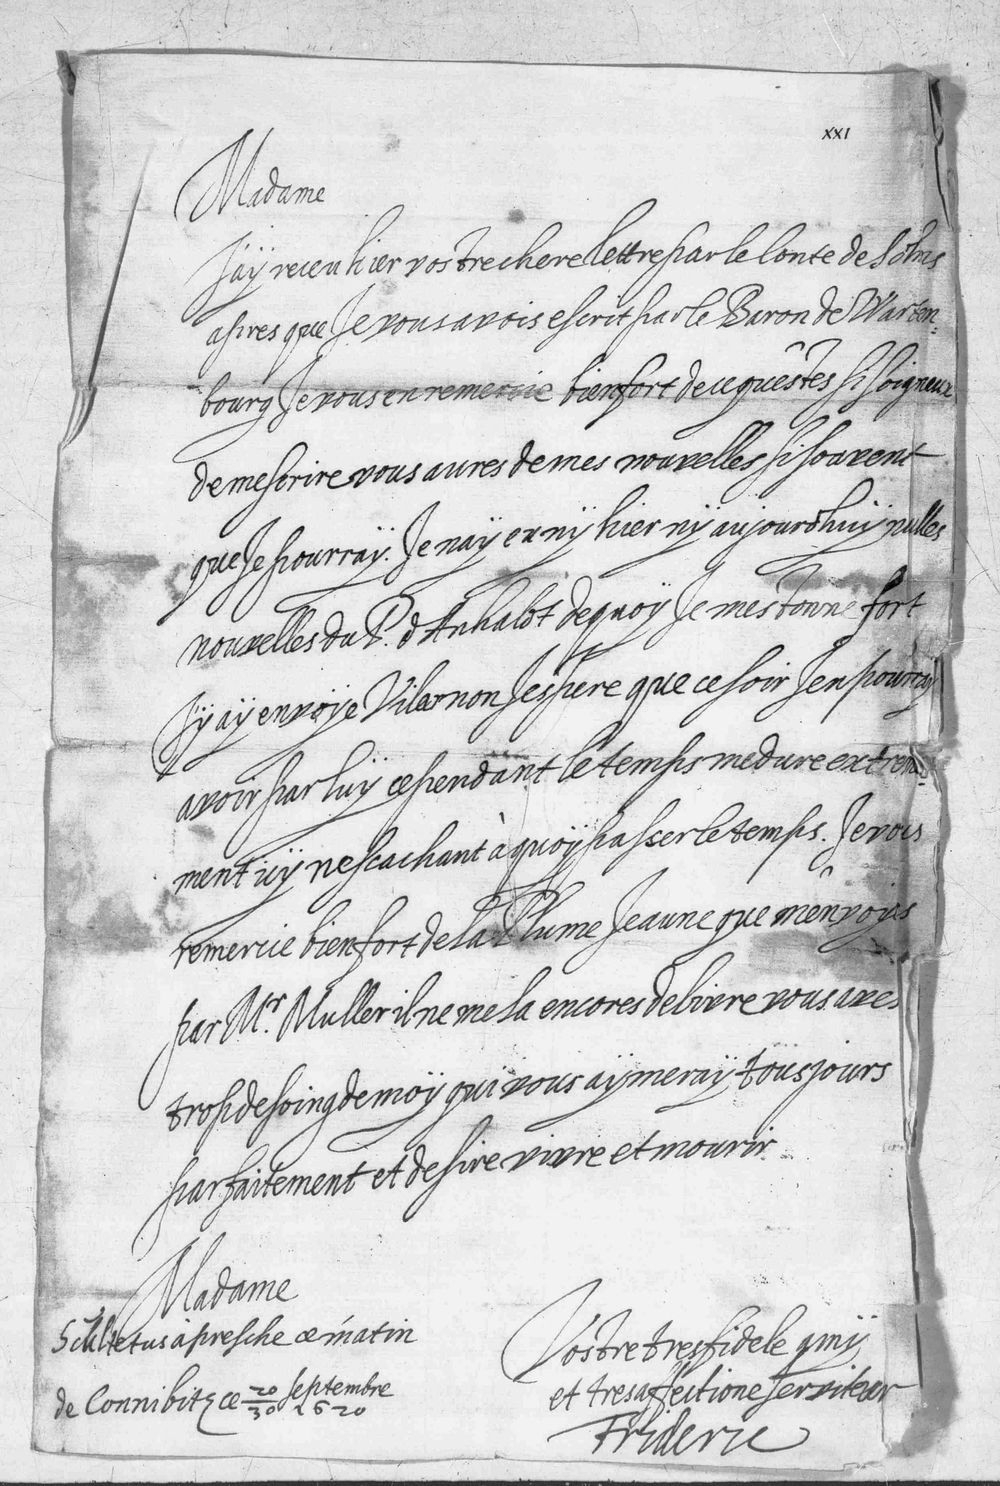 XXI
Madame
J'aÿ receu hier vostre chere lettre par le Conte de Solms
apres que Je vous avois escrit par le Baron de Warten=
bourg Je vous en remercie bien fort de ce qu'êstes si soigneux
de mescrire vous aures de mes nouvelles si souvent
que Je pourraÿ. Je naÿ eu nÿ hier nÿ aujourdhuÿ nulles
nouvelles du P. d'Anhalt de quoÿ Je mestonne fort
J'ÿ aÿ envoÿe Vilarnon Jespere que ce soir J'en pourraÿ
avoir par luÿ cependant le temps me dure extreme=
ment icÿ ne scachant à quoÿ passer le temps. Je vous
remercie bien fort de la Plume Jeaune que m'envoÿés
par Mr. Muller il ne me la encores delivre vous aves
trop de soing de moÿ qui vous aÿmeraÿ tousjours
parfaitement et desire vivre et mourir
Madame
Scultetus à presche ce matin
de Connibitz ce 20/30 Septembre 1620
Vostre tres fidele amÿ
et tres affectione serviteur
Frideric